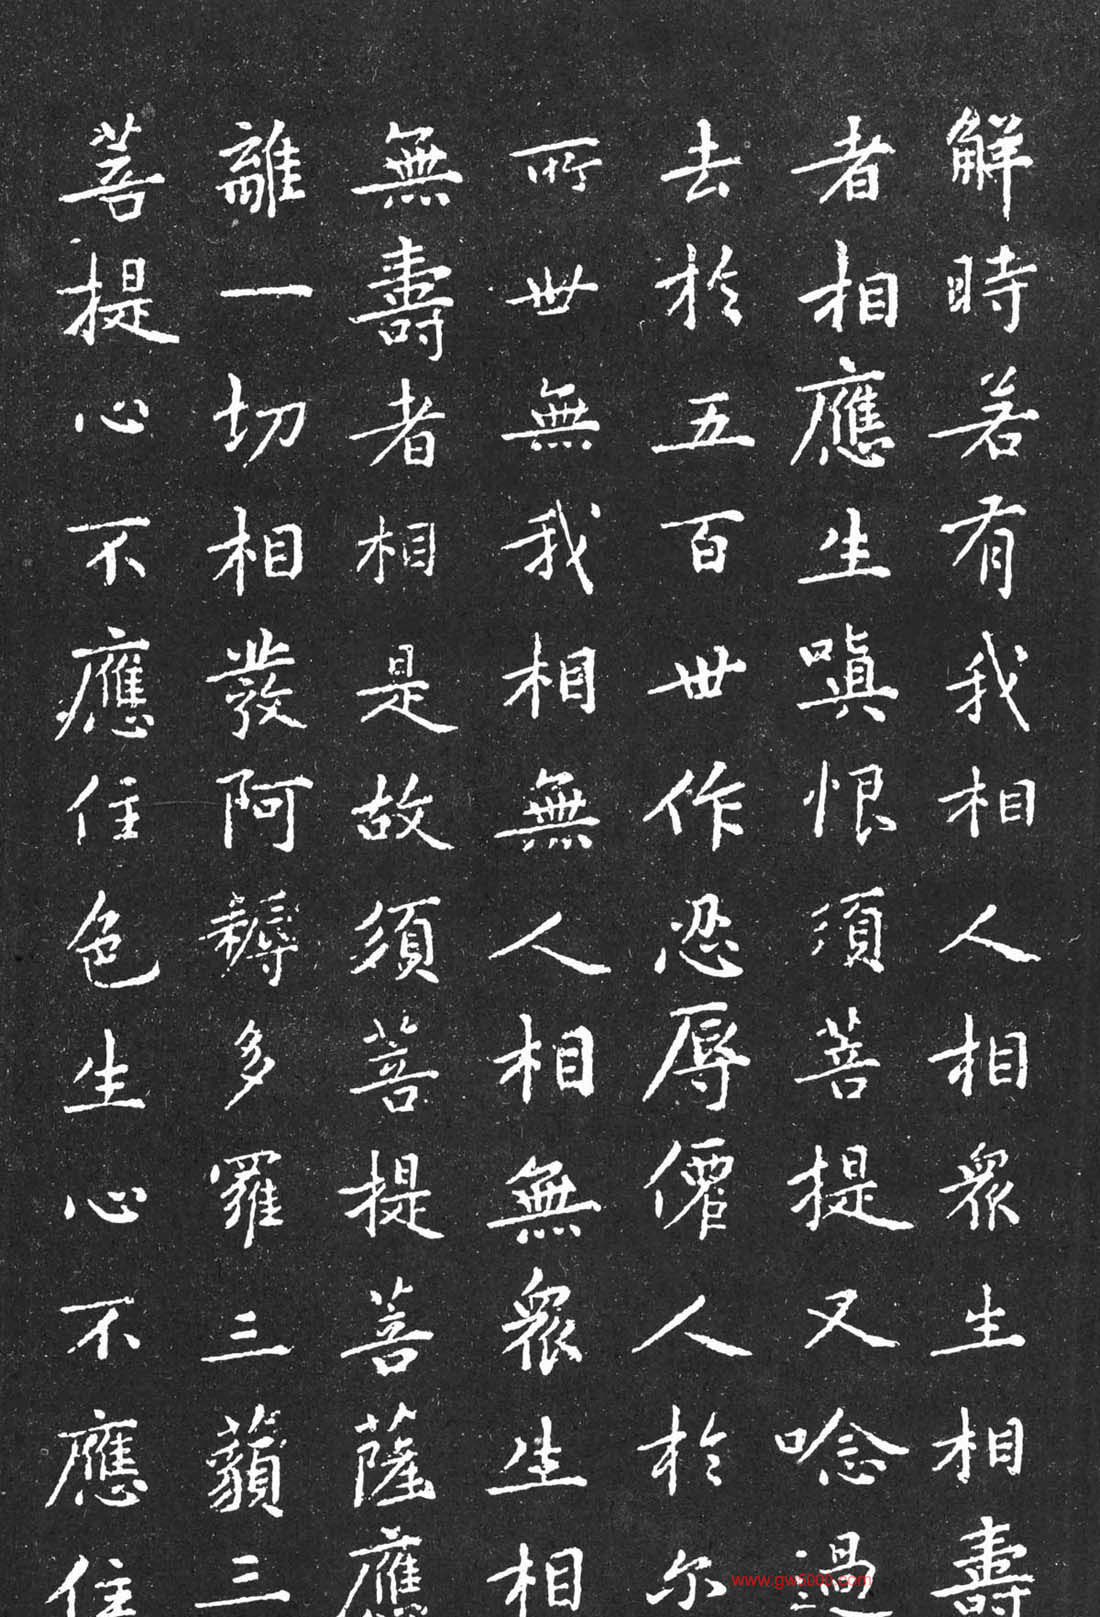 解時若有我相人相眾生相壽
者相應生嗔恨須菩提又唸過
去於五百世作忍辱僊人於尔
所世無我相無人相無眾生相
無壽者相是故須菩提菩薩應
離一切相發阿耨多羅三藐三
菩提心不應住色生心不應住
www.gw5000.com